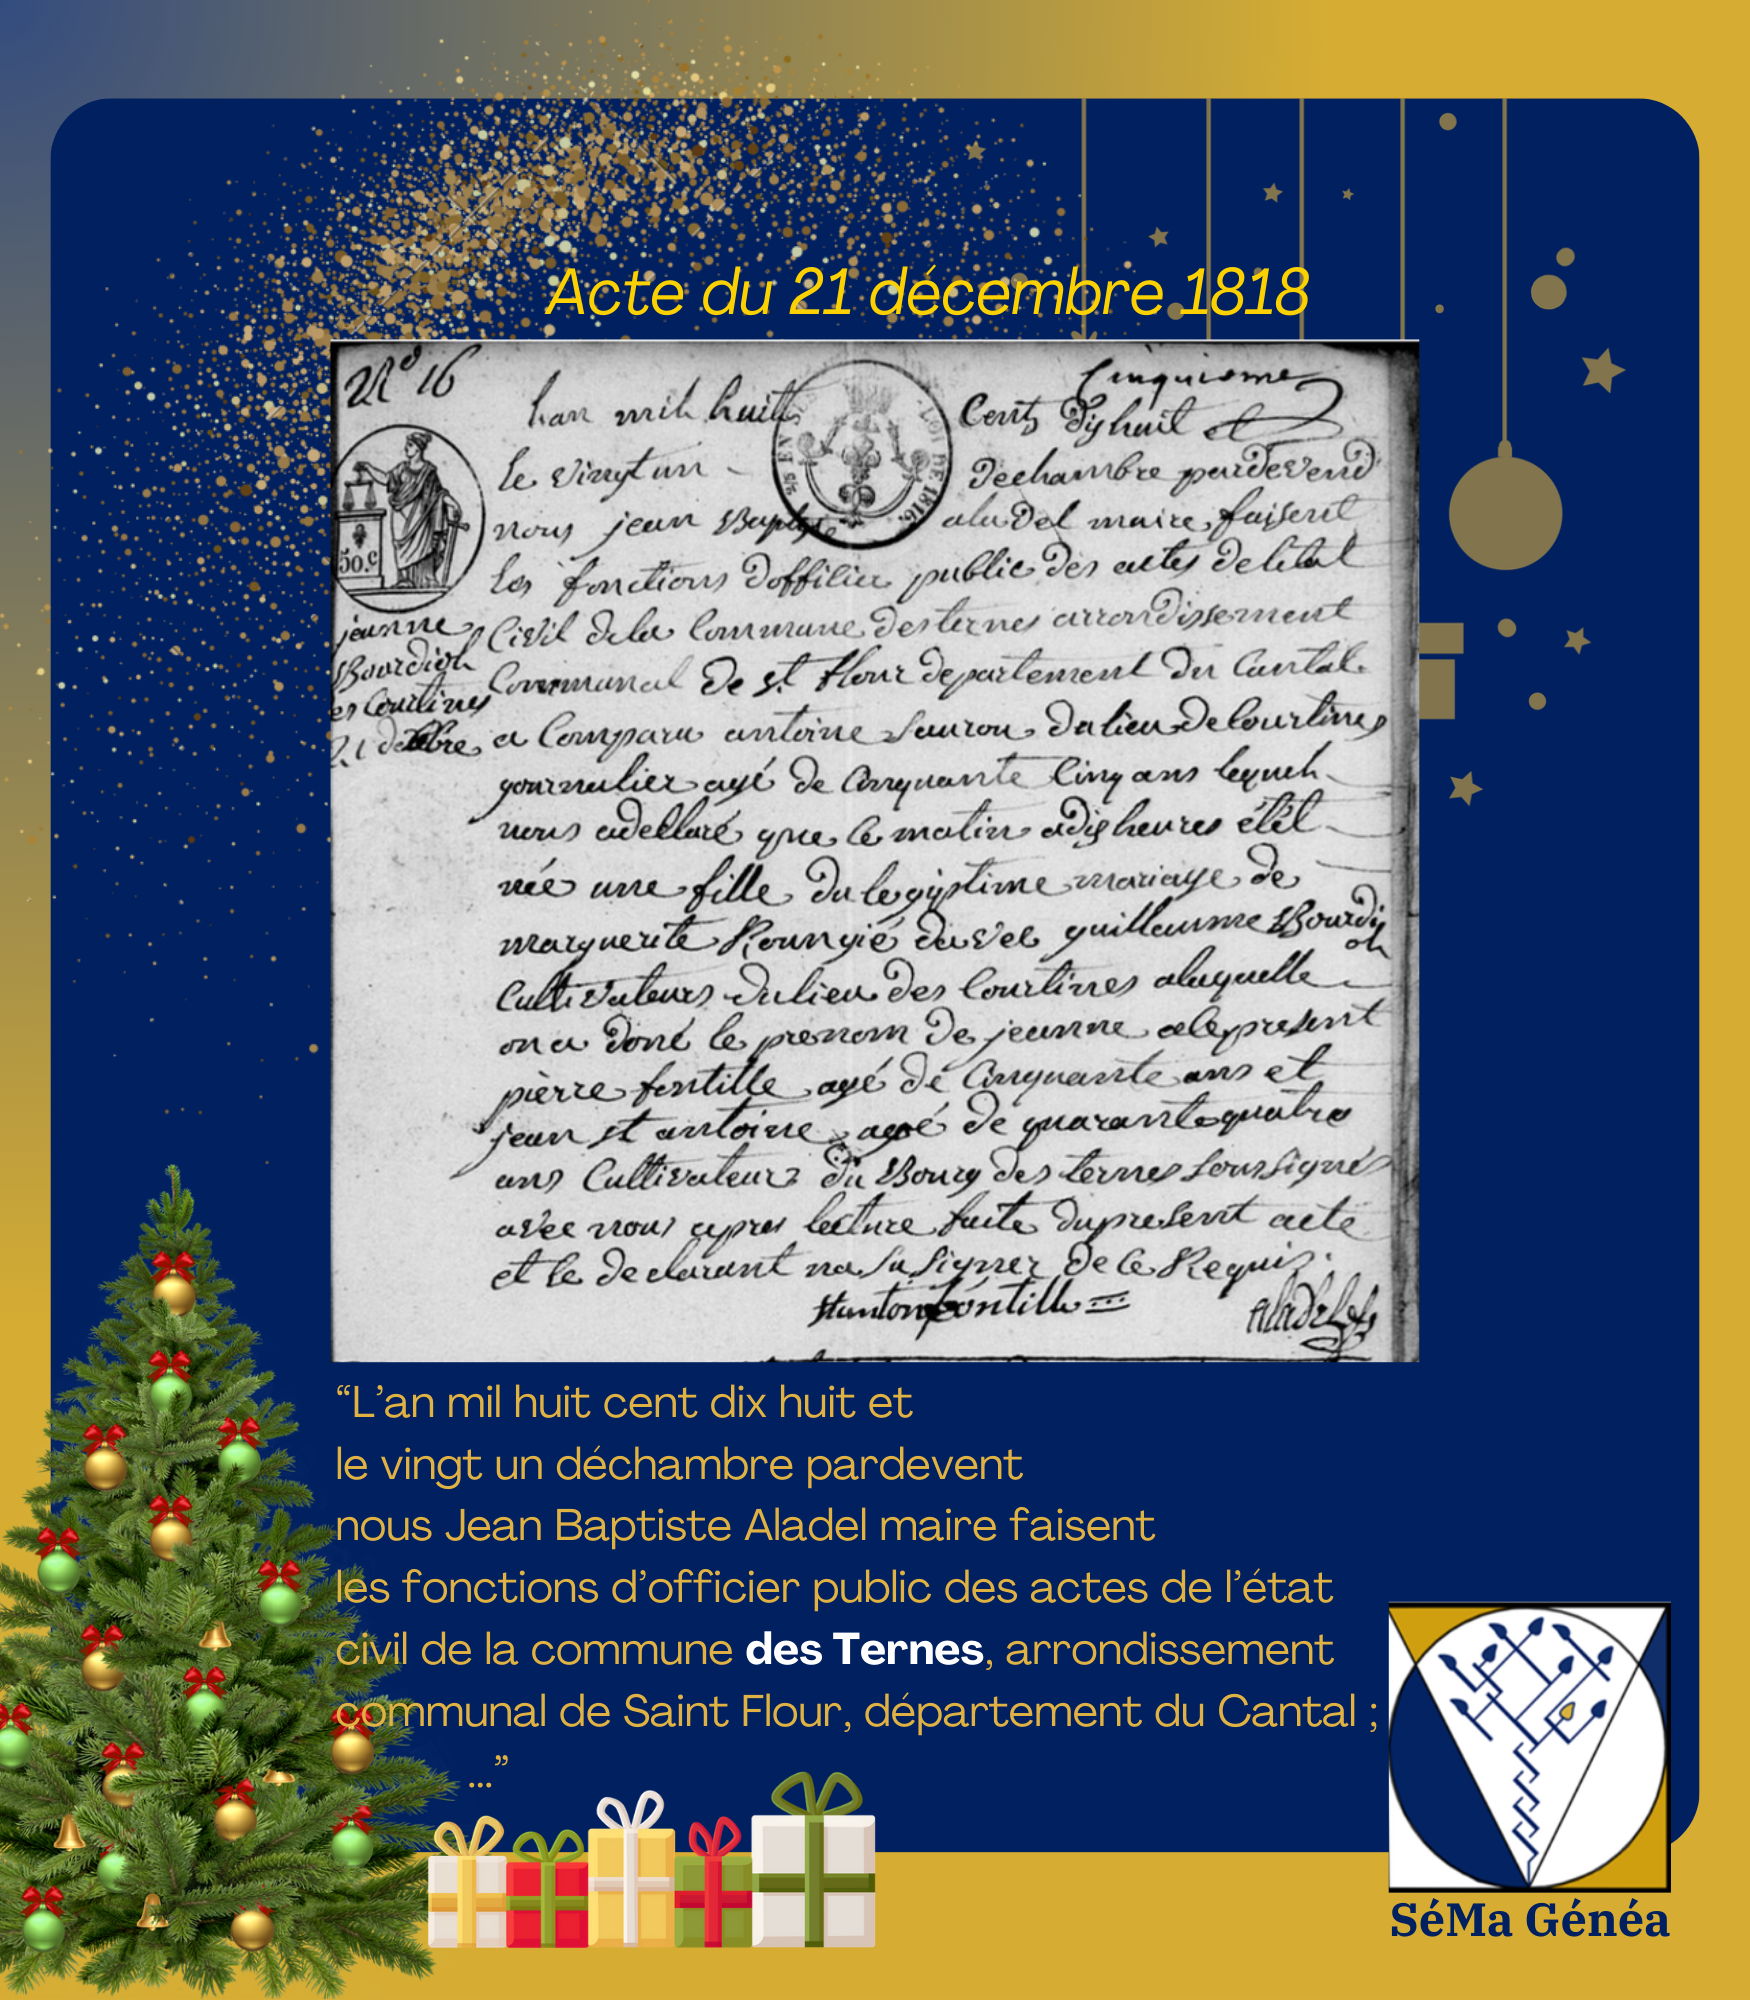 Acte du 21 décembre 1818
N° 16
Cinquieme
Lan mil huit Cent dix huit et
le vingt un dechambre pardevend
nous jean Baptiste aladel maire faisent
les fonctions doffilier public des actes deletat
Civil dela Commune desternes arrondissement
Communal de st flour departement du Cantal
a Comparu antoine Sauron dulieu de Courtines
journalier agé de Cinquante Cinq ans lequel
nous adellaré que ce matin adix heures étét
née une fille du legiptime mariage de
marguerite Roungié avec guillaume Bourdiol
Cultivateurs dulieu des Courtines alaquelle
on a doné le prenom de jeanne alepresent
pièrre fontille agé de Cinquante ans et
jean st antoine agé de quarante quatre
ans Cultivateurs du Bourg des ternes soussignés
avec nous apres lecture faite dupresent acte
et le declarant na su signer de ce Requis.
stantoine fontille
aladel
jeanne
Bourdiol
es Courtines
21 decbre
50.c
LOI DE 1816.
“L’an mil huit cent dix huit et
le vingt un déchambre pardevent
nous Jean Baptiste Aladel maire faisent
les fonctions d’officier public des actes de l’état
civil de la commune des Ternes, arrondissement
communal de Saint Flour, département du Cantal ;
...”
SéMa Généa